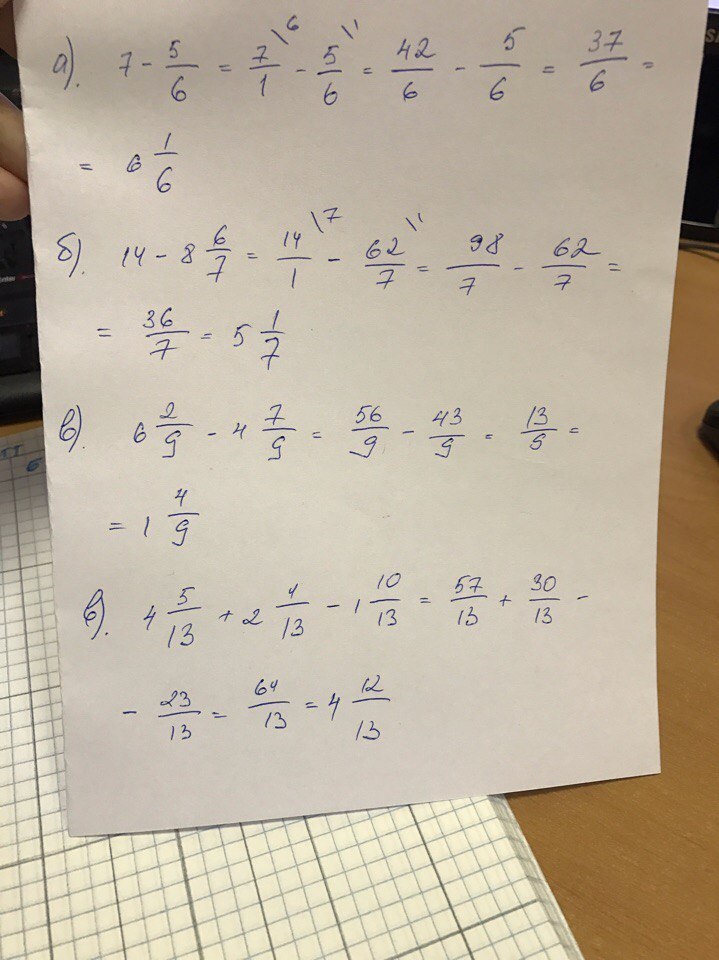 а). 7 - 5/6 = 7/1 \6 - 5/6 \1 = 42/6 - 5/6 = 37/6 =
= 6 1/6
б). 14 - 8 6/7 = 14/1 \7 - 62/7 \1 = 98/7 - 62/7 =
= 36/7 = 5 1/7
в). 6 2/9 - 4 7/9 = 56/9 - 43/9 = 13/9 =
= 1 4/9
в). 4 5/13 + 2 4/13 - 1 10/13 = 57/13 + 30/13 -
- 23/13 = 64/13 = 4 12/13